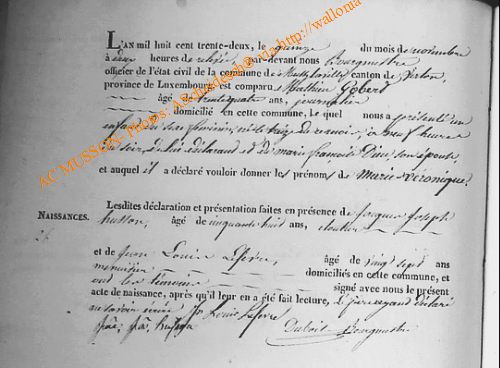 L'AN mil huit cent trente-deux, le quinze du mois de novembre
à deux heures de relevé, par-devant nous Bourgmestre
officier de l'état civil de la commune de canton de Virton,
province de Luxembourg est comparu Mathieu Gobert
âgé de trente quatre ans, journalier
domicilié en cette commune, le quel nous a présenté un
enfant du sexe féminin, né le treize de ce mois, à neuf heures
du soir, de lui déclarant et de marie françoise Dieu, son épouse,
et auquel il a déclaré vouloir donner les prénoms de Marie Véronique.
Lesdites déclaration et présentation faites en présence de Jacques Joseph
NAISSANCES.
husson, âgé de cinquante huit ans, cloutier
et de Jean Louis Lefevre, âgé de vingt sept ans
menuisier domiciliés en cette commune, et
ont les témoins signé avec nous le présent
acte de naissance, après qu'il leur en a été fait lecture, le père ayant déclaré
ne savoir écrire Jn Louis Lefevre
husson Dubois Bourgmestre
AC MUSSON Photos: Archives de l'Etat http://wallonia